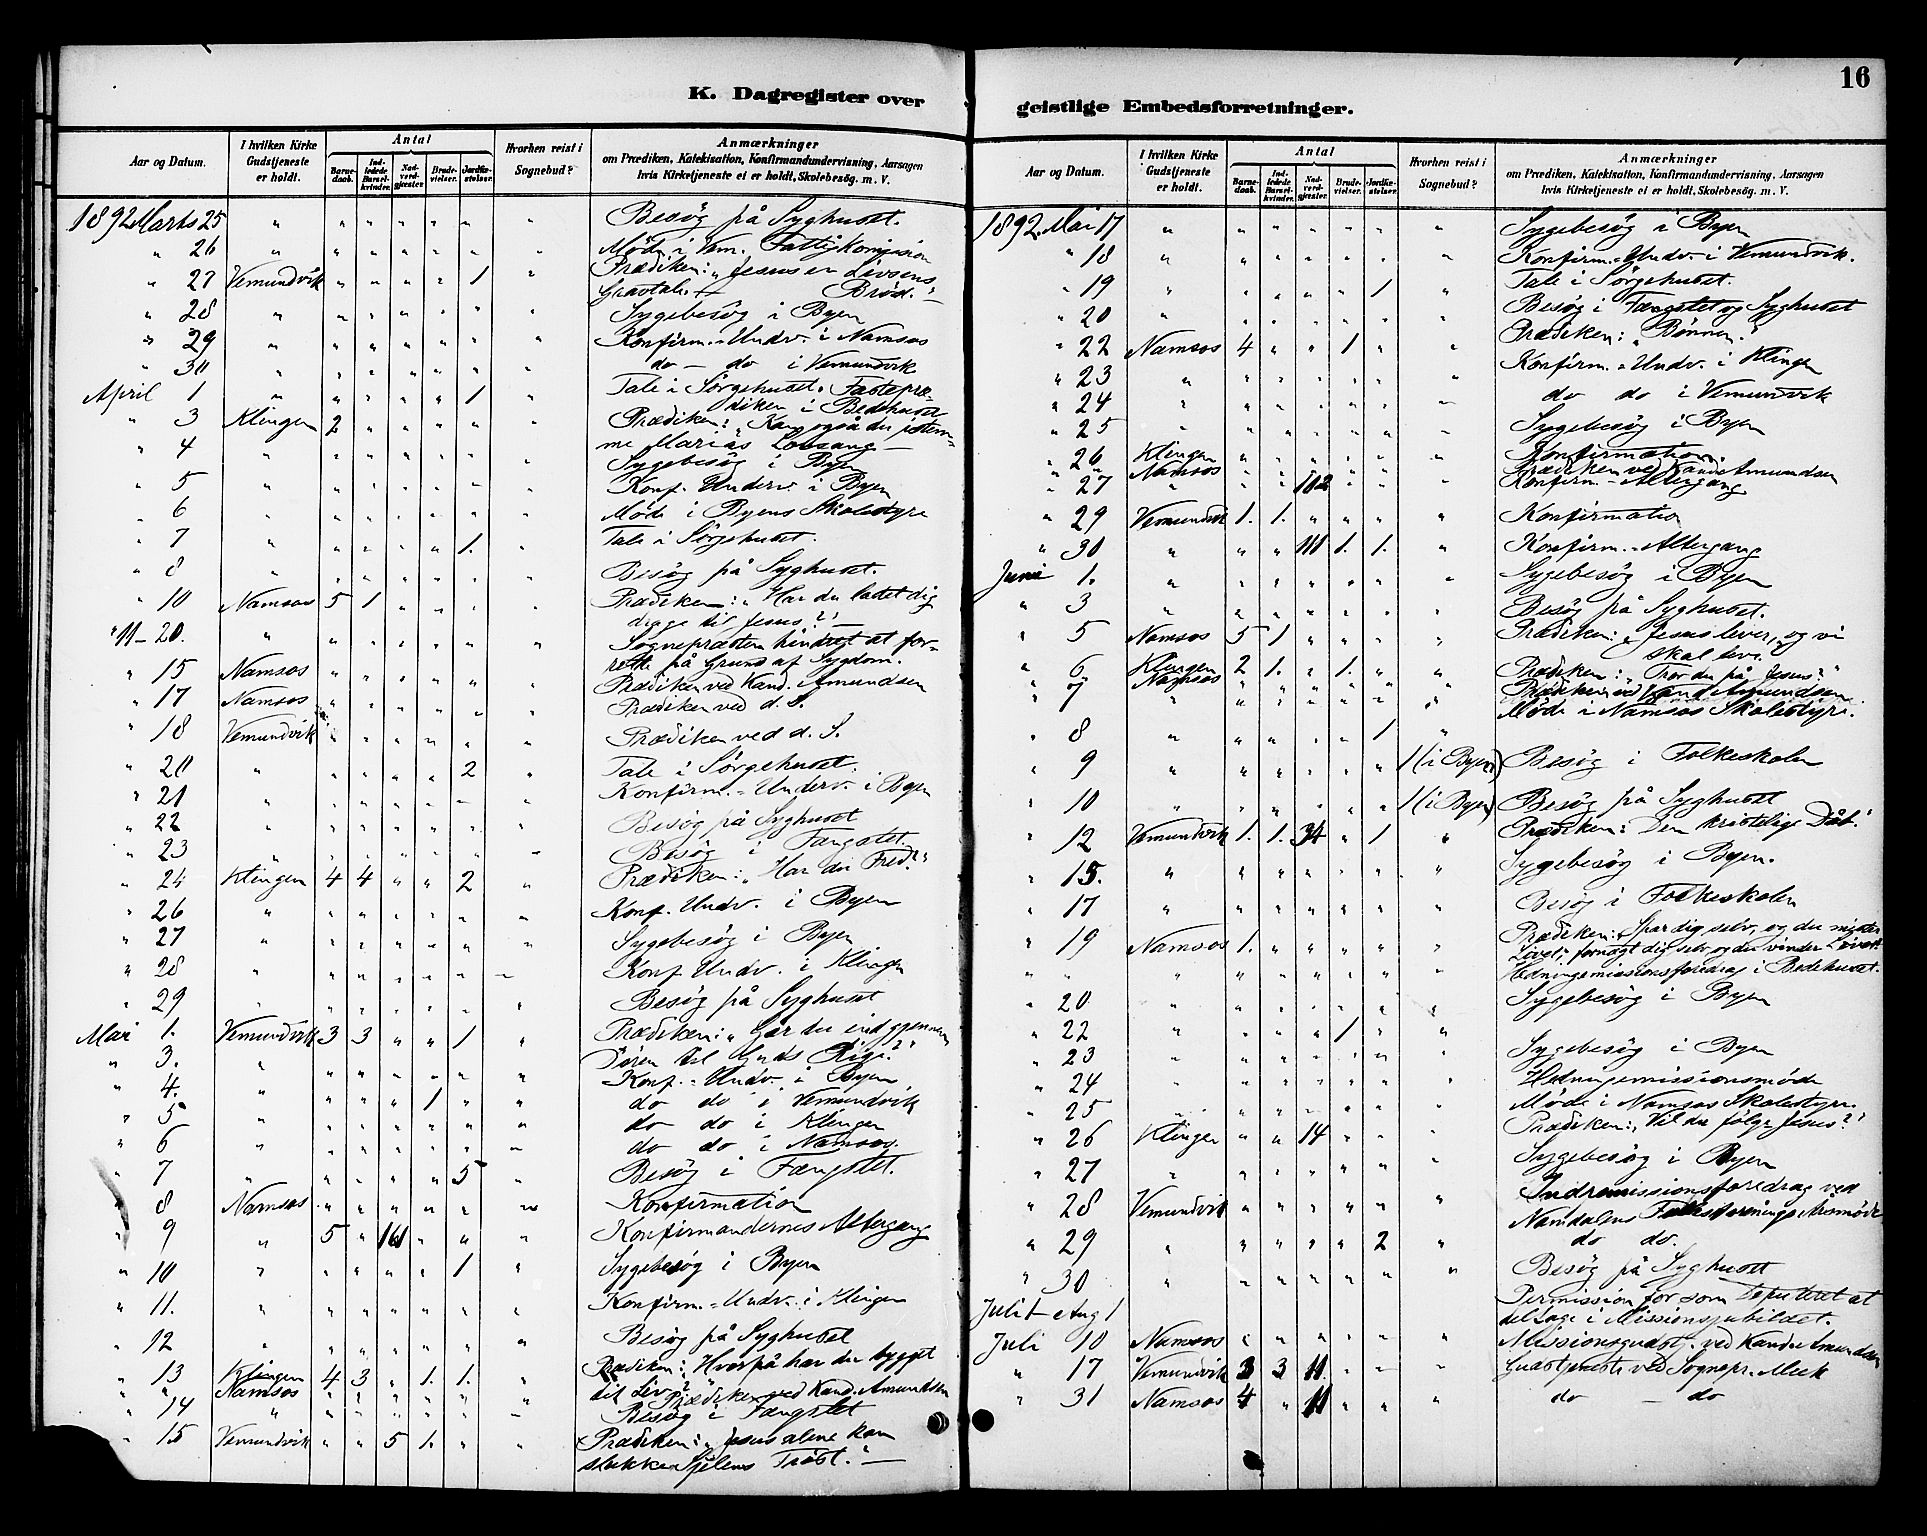 16
K. Dagregister over geistlige Embedsforretninger.
Aar og Datum. | I hvilken Kirke Gudstjeneste er holdt. | Antal | Barnedaab. | Indledede Barselkvinder. | Nadverdgjester. | Brudevielser. | Jordfæstelser. | Hvorhen reist i Sognebud? | Anmærkninger om Prædiken, Katekisation, Konfirmandundervisning, Aarsagen hvis Kirketjeneste ei er holdt, Skolebesøg. m. V.
1892 Marts 25 " " " " " " " Besøg på Syghuset.
" 26 " " " " " " " Møde i Vem. Fattigkomission
" 27 Vemundvik " " " " 1 " Prædiken: "Jesus er Livsens
Gravtale. Brød."
" 28 " " " " " " " Sygebesøg i Byen
" 29 " " " " " " " Konfirm.-Undv. i Namsos
" 30 " " " " " " " do - do i Vemundvik
April 1 " " " " " 1 " Tale i Sørgehuset. Fastepræ-
diken i Bedehuset
" 3 Klingen 2 " " " " " Prædiken: "Kan også du istem-
me Marias Lovsang —
" 4 " " " " " " " Sygebesøg i Byen
" 5 " " " " " " " Konf. Underv. i Byen
" 6 " " " " " " " Møde i Byens Skolestyre
" 7 " " " " " 1. " Tale i Sørgehuset.
" 8 " " " " " " " Besøg på Syghuset.
" 10 Namsos 5 1 " " " " Prædiken: "Har du ladet dig
digge til Jesus?" —
" 11-20. " " " " " " " Sognepræsten hindret at for-
rette på Grund af Sygdom.
" 15 Namsos " " " " " " Prædiken ved Kand. Amundsen
" 17 Namsos " " " " " " Prædiken ved d. S.
" 18 Vemundvik " " " " " " Prædiken ved d. S.
" 20 " " " " " 2 " Tale i Sørgehuset.
" 21 " " " " " " " Konfirm.-Underv. i Byen
" 22 " " " " " " " Besøg på Syghuset
" 23 " " " " " " " Besøg i Fængslet.
" 24 Klingen 4 4 " " 2 " Prædiken: "Har du Fred?"
" 26 " " " " " " " Konf. Undv. i Byen
" 27 " " " " " " " Sygebesøg i Byen
" 28 " " " " " " " Konf. Undv. i Klingen
" 29 " " " " " " " Besøg på Syghuset
Mai 1. Vemundvik 3 3 " " 1 " Prædiken: "Går du ind gjennem
Døren til Guds Rige?"
" 3. " " " " " " " Konf.-Undv. i Byen
" 4. " " " " 1 " " do do i Vemundvik
" 5 " " " " " " " do do i Klingen
" 6 " " " " " " " do do i Namsos.
" 7 " " " " " 5 " Besøg i Fængslet.
" 8 Namsos " " " " " " Konfirmation
" 9 " 5 " 161 " " " Konfirmandernes Altergang
" 10 " " " " " 1 " Sygebesøg i Byen
" 11. " " " " " " " Konfirm.-Undv. i Klingen
" 12 " " " " " " " Besøg på Syghuset
" 13 Klingen 4 3 " 1. 1. " Prædiken: Hvorpå har du bygget
" " Namsos " " " " " " dit Liv? Prædiken ved Kand. Amundsen
" 14 " " " " " " " Besøg i Fængslet
" 15 Vemundvik " " 5 1. " " Prædiken: "Jesus alene kan
slukke Sjelens Tröst." —
Aar og Datum. | I hvilken Kirke Gudstjeneste er holdt. | Antal | Barnedaab. | Indledede Barselkvinder. | Nadverdgjester. | Brudevielser. | Jordfæstelser. | Hvorhen reist i Sognebud? | Anmærkninger om Prædiken, Katekisation, Konfirmandundervisning, Aarsagen hvis Kirketjeneste ei er holdt, Skolebesøg. m. V.
1892. Mai 17 " " " " " " " Sygebesøg i Byen
" 18 " " " " " " " Konfirm.-Undv. i Vemundvik.
" 19 " " " " " 1 " Tale i Sørgehuset.
" 20 " " " " " " " Besøg i Fængslet og Syghuset
" 22 Namsos 4 " " 1 " " Prædiken: "Bønnen."
" 23 " " " " " " " Konfirm.-Undv. i Klingen
" 24 " " " " " " " do do i Vemundvik
" 25 " " " " " " " Sygebesøg i Byen
" 26 Klingen " " " " " " Konfirmation.
" " Namsos " " " " " " Prædiken ved Kand. Amundsen
" 27 " " " 102 " " " Konfirm-Altergang
" 29 Vemundvik 1. 1. " " " " Konfirmation
" 30 " " " 111 1. 1. " Konfirm.-Altergang
Juni 1. " " " " " " " Sygebesøg i Byen
" 3 " " " " " " " Besøg på Syghuset.
" 5 Namsos 5 1 " " " " Prædiken: "Jesus lever, og vi
skal leve."
" 6 Klingen 2 1. " 1. " " Prædiken: "Tror du på Jesus?"
" " Namsos " " " " " " Prædiken ved Kand Amundsen
" 7 " " " " " " " Møde i Namsos Skolestyre.
" 8 " " " " " 1 "
" 9 " " " " " " 1 (i Byen) Besøg i Folkeskolen
" 10 " " " " " " 1 (i Byen) Besøg på Syghuset
" 12 Vemundvik 1. 1. 34 " 1 " Prædiken: Den kristelige Dåb."
" 15. " " " " " " " Sygebesøg i Byen.
" 17 " " " " " " " Besøg i Folkeskolen
" 19 Namsos 1. " " " " " Prædiken: "Spar dig selv, og du mister
Livet; fornægt dig selv og du vinder Livet
" " " " " " " " " Hedningemissionsforedrag i Bedehuset.
" 20 " " " " " " " Sygebesøg i Byen
" 22 " " " " 1 " "
" 23 " " " " " " " Sygebesøg i Byen
" 24 " " " " " " " Hedningemissionsmøde
" 25 " " " " " " " Møde i Namsos Skolestyre.
" 26 Klingen " " 14 " " " Prædiken: "Vil du følge Jesus?"
" 27 " " " " " " " Sygebesøg i Byen
" 28 Vemundvik " " " " " " Indremissionsforedrag ved
Namdalens Fællesforenings Årsmøde
" 29 " " " " " 2 " do do.
" 30 " " " " " " Besøg på Syghuset
Juli 1 - Aug 1 Permission for som Deputeret at
deltage i Missionsjubilæet.
Juli 10 Namsos " " " " " " Missionsgudst. ved Kand. Amundsen
" 17 Vemundvik 3 3 11. " " " Gudstjeneste ved Sognepr. Meek
" 31 Namsos 4 " 11 " " " do — do